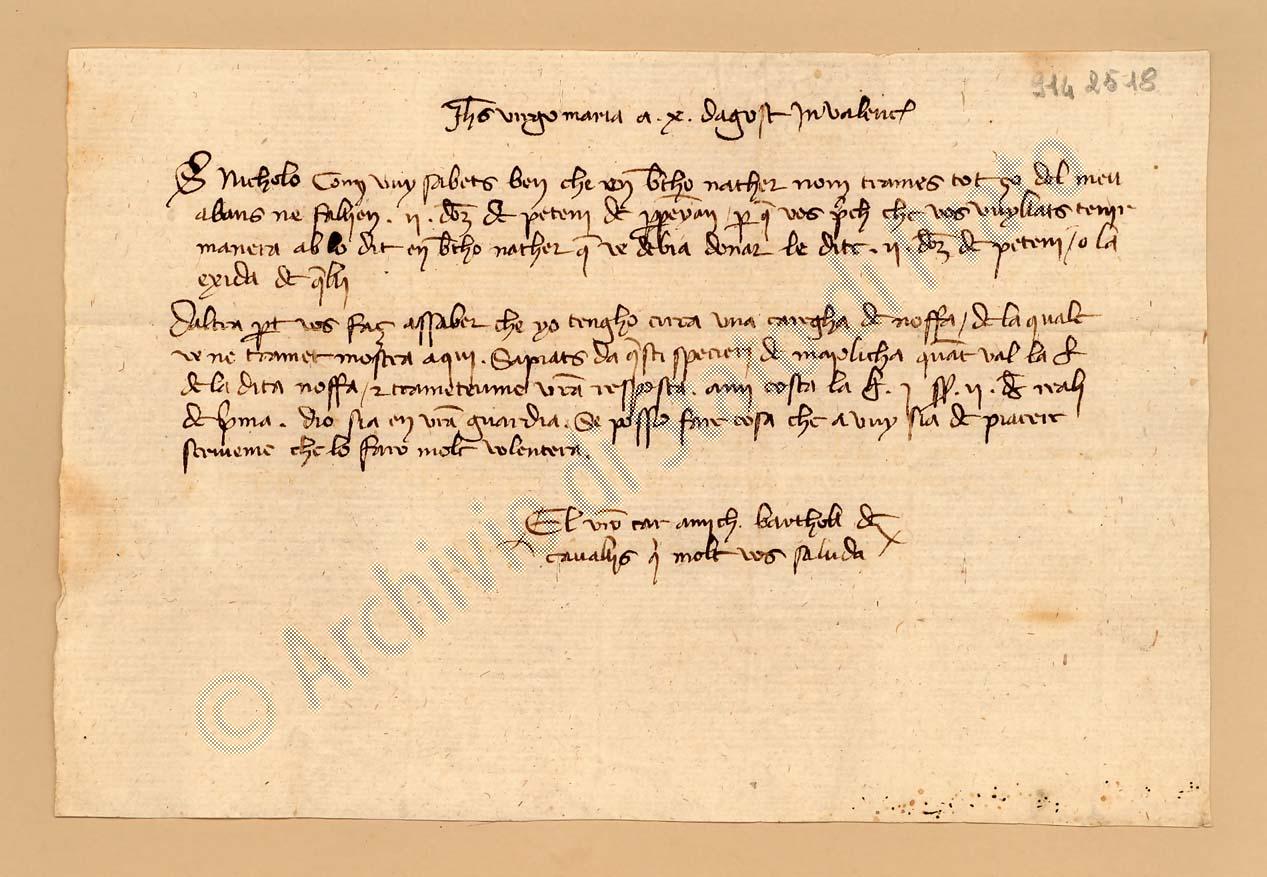 914 2518
Jhs virgo maria a . x . dagost Jn valenc
S Nicholo Com vuy sabets ben che en btho nather nom trames tot ço del meu
abans ne falien . ii . doz de peteni de ppeyan / p q vos pch che vos vuyliats tenir
manera ab lo dit en btho nather q ve debia donar le dite . ii . doz de peteni / o la
exida de qlli
Daltra pt vos faz assaber che yo tengho circa una caregha de noffa / de la quale
ve ne tramet mostra aqui . Sapiats da qsti specieri de maiolicha quat val la £
de la dita noffa / et trameteume vra resposta . anu costa la £ . j ss . ii . d reali
de pma . dio sia en vra guardia . Se posso fare cosa che a vuy sia de piacere
scriveme che lo faro molt volentera .
El vro car amich . bartholi de
cavallis q molt vos saluda
© Archivio di Stato di Prato